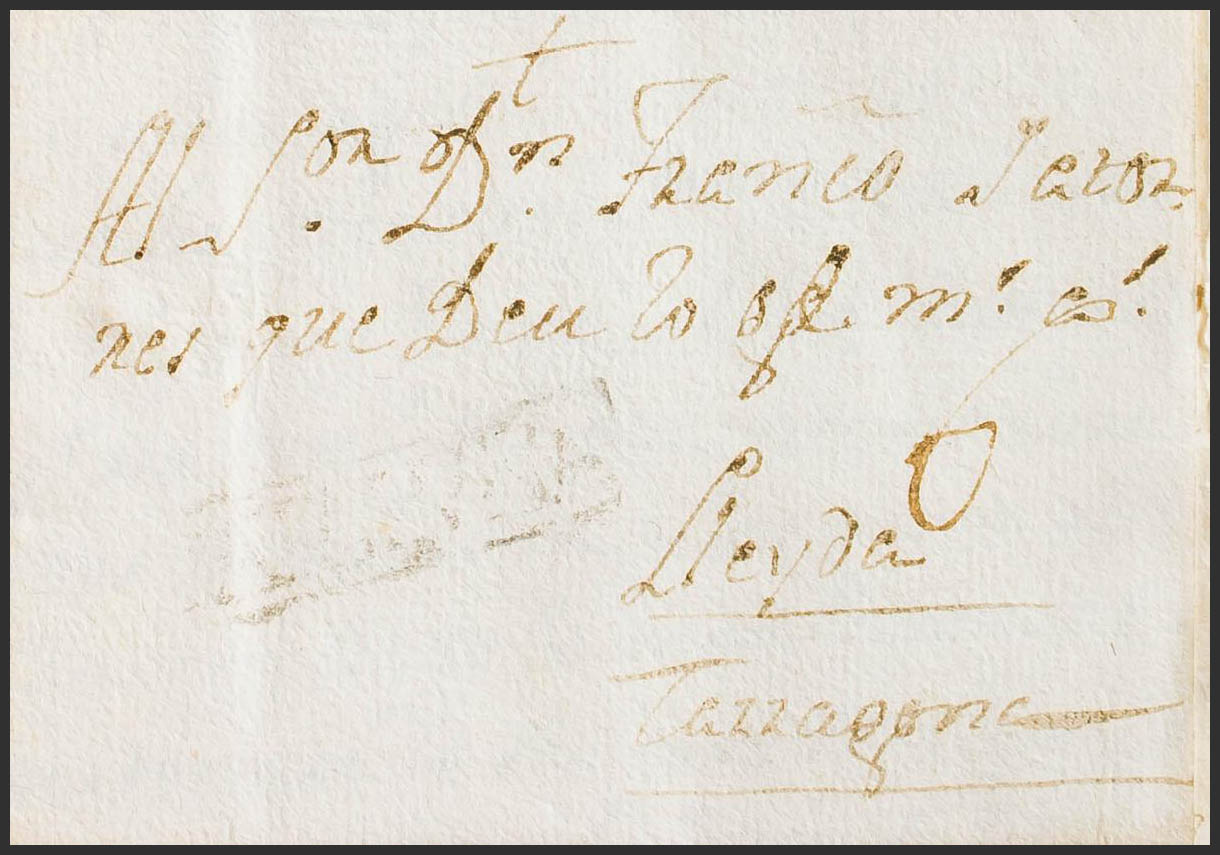 t
Al S.or D.n Franco Jeron
nes que Deu lo gde m.s a.s
Lleyda
Tarragona